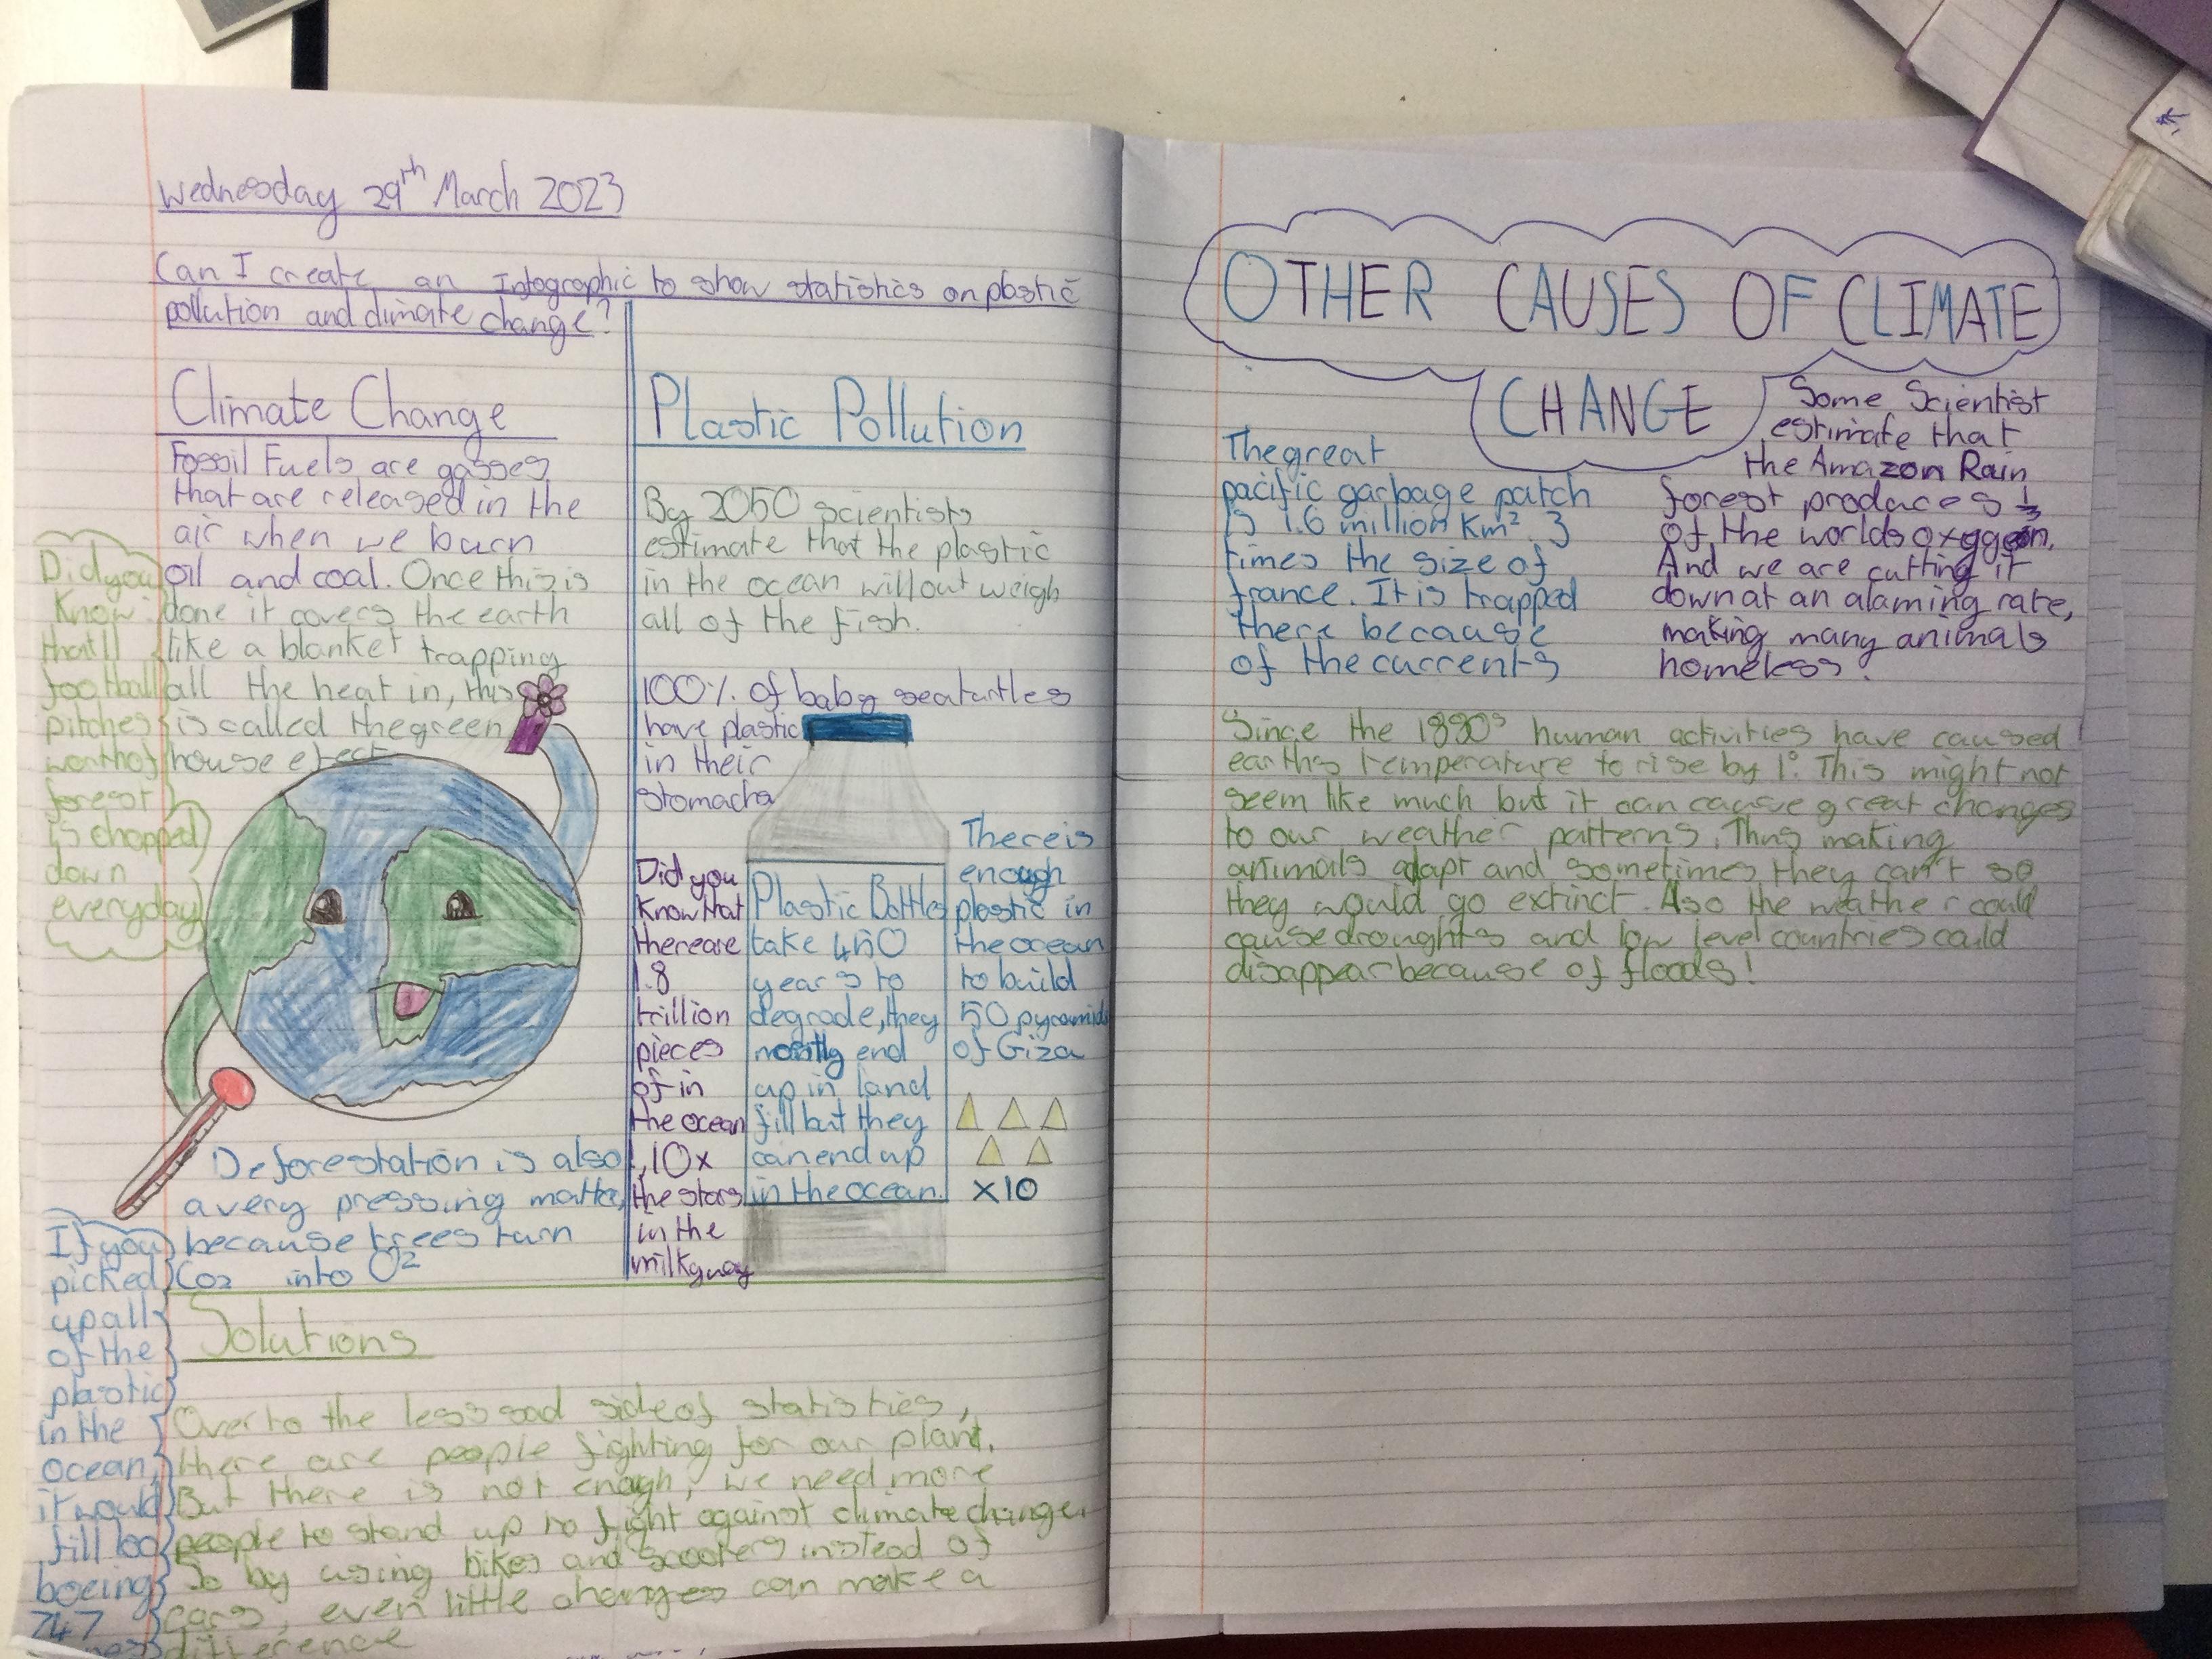 Wednesday 29th March 2023
Can I create an Infographic to show statistics on plastic
pollution and climate change?
Climate Change
Fossil Fuels are gasses
that are released in the
air when we burn
oil and coal. Once this is
done it covers the earth
like a blanket trapping
all the heat in, this
is called the green
house efect
Did you
Know
that 11
football
pitches
worth of
forest
is chopped
down
everyday
Deforestation is also
a very pressing matter,
because trees turn
Co2 into O2
Plastic Pollution
By 2050 scientists
estimate that the plastic
in the ocean will out weigh
all of the fish.
100% of baby seaturtles
have plastic
in their
stomachs
Did you
know that
there are
1.8
trillion
pieces
of in
the ocean
, 10x
the stars
in the
milkyway
Plastic Bottles
take 450
years to
degrade, they
mostly end
up in land
fill but they
can end up
in the ocean.
There is
enough
plastic in
the ocean
to build
50 pyramids
of Giza
x10
If you
picked
up all
of the
plastic
in the
ocean,
it would
fill
boeing
747
Solutions
Over to the less sad side of statisties,
there are people fighting for our plant.
But there is not enough, we need more
people to stand up to fight against climate change.
So by using bikes and scooters instead of
cars, even little changes can make a
difference
OTHER CAUSES OF CLIMATE
CHANGE
The great
pacific garbage patch
is 1.6 million Km². 3
times the size of
france. It is trapped
there because
of the currents
Some Scientist
estimate that
the Amazon Rain
forest produces 1/3
of the worlds oxygen.
And we are cutting it
down at an alaming rate,
making many animals
homeless.
Since the 1880s human activities have caused
earths temperature to rise by 1°. This might not
seem like much but it can cause great changes
to our weather patterns. Thus making
animals adapt and sometimes they can't so
they would go extinct. Also the weather could
cause droughts and low level countries could
disappear because of floods!